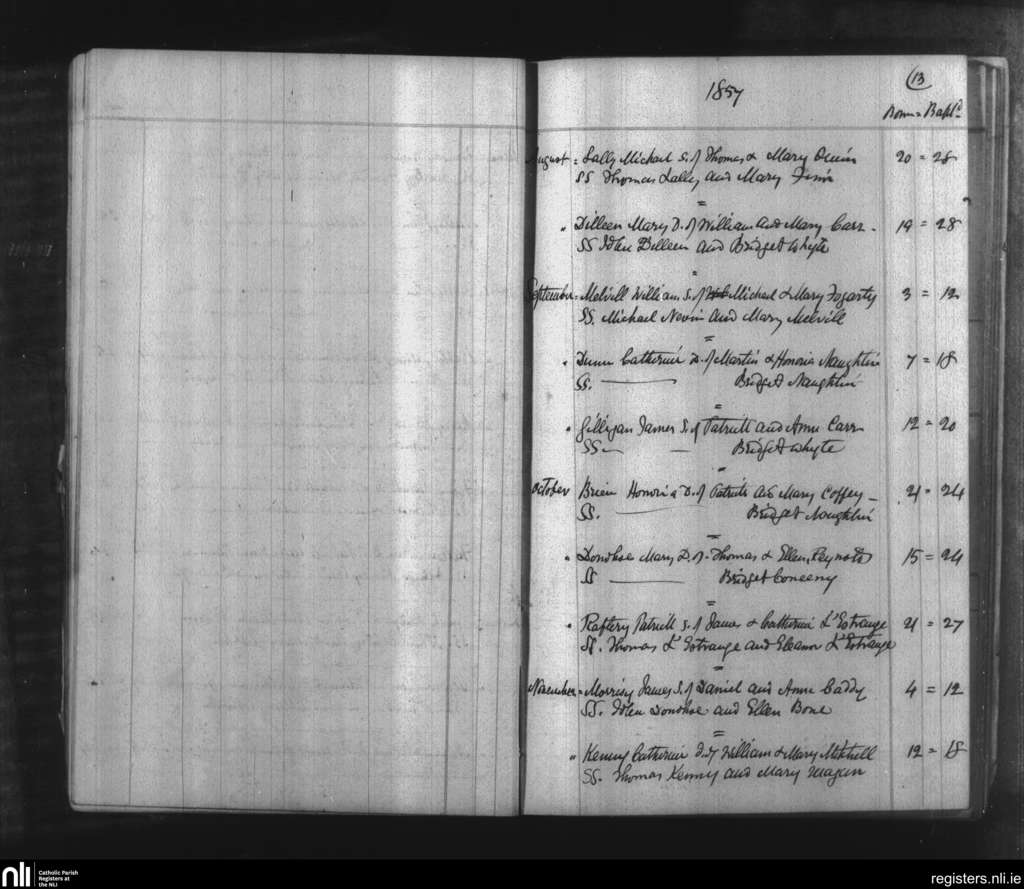 13
1857
Born = Baptd
August = Lally Michael S. of Thomas & Mary Quin 20 = 28
SS Thomas Lally and Mary Finn
" Dilleen Mary D. of William and Mary Carr - 19 = 28
SS John Dilleen and Bridget Whyte
September = Melvill William S. of Michael & Mary Fogarty 3 = 12
SS. Michael Nevin and Mary Melvill
" Dunn Catherine D. of Martin & Honoria Naughtin 7 = 18
SS. Bridget Naughtin
" Gilligan James S. of Patrick and Anne Carr 12 = 20
SS Bridget Whyte
October Brien Honoria D. of Patrick and Mary Coffey 21 = 24
SS. Bridget Naughtin
" Donohoe Mary D. of Thomas & Ellen 15 = 24
SS Bridget Coneeny
" Raftery Patrick S. of James & Catherine L'Estrange 21 = 27
SS. Thomas L'Estrange and Eleanor L'Estrange
November = Morrisy James S. of Daniel and Anne Caddy 4 = 12
SS. John Donohoe and Ellen Bone
" Kenny Catherine D. of William & Mary Mitchell 12 = 18
SS. Thomas Kenny and Mary
nli
Catholic Parish
Registers at
the NLI
registers.nli.ie